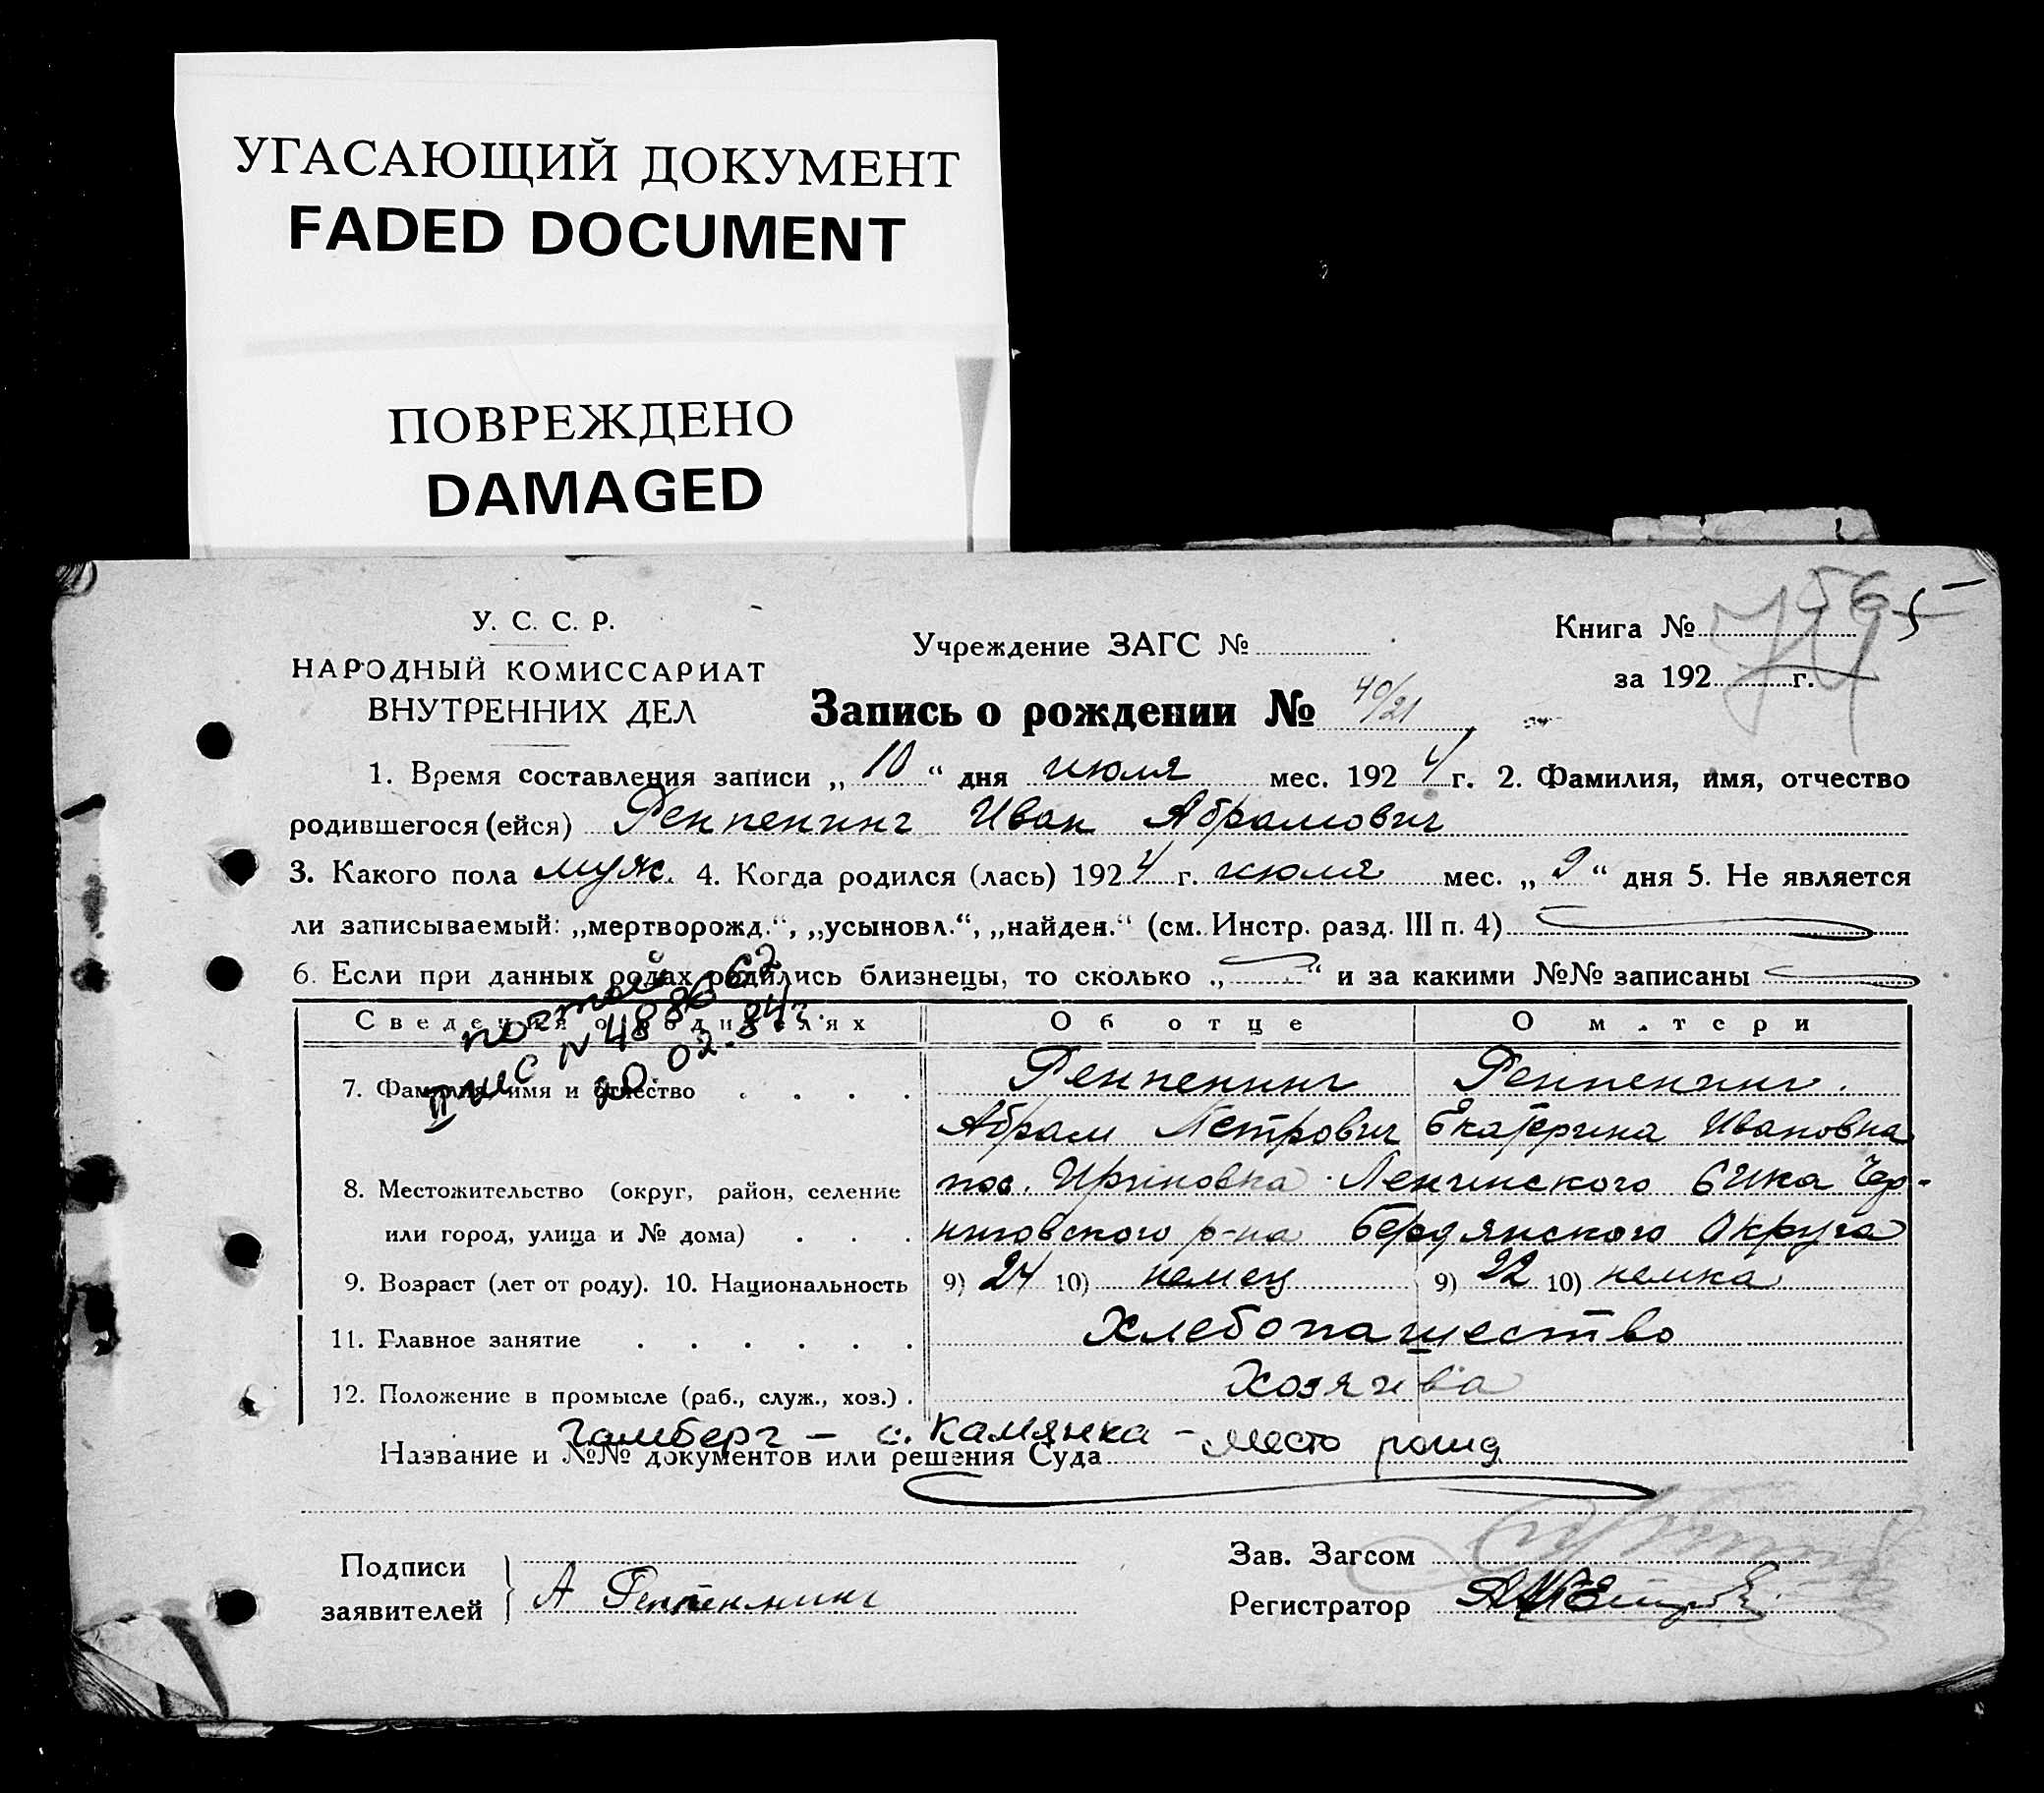 УГАСАЮЩИЙ ДОКУМЕНТ
FADED DOCUMENT
ПОВРЕЖДЕНО
DAMAGED
У. С. С. Р.
НАРОДНЫЙ КОМИССАРИАТ
ВНУТРЕННИХ ДЕЛ
Учреждение ЗАГС №
Книга №
за 192 г.
Запись о рождении № 40/21
1. Время составления записи „ 10 “ дня июля мес. 192 4 г. 2. Фамилия, имя, отчество
родившегося (ейся) Реппенинг Иван Абрамович
3. Какого пола муж. 4. Когда родился (лась) 192 4 г. июля мес. „ 9 “ дня 5. Не является
ли записываемый: „мертворожд.“, „усыновл.“, „найден.“ (см. Инстр. разд. III п. 4)
6. Если при данных родах родились близнецы, то сколько „ “ и за какими №№ записаны
повторное
N 488662
20.02.84г.
Сведения о родителях Об отце О матери
7. Фамилия, имя и отчество Реппенинг Реппенинг.
Абрам Петрович Екатерина Ивановна
8. Местожительство (округ, район, селение пос. Ленинского Чер-
или город, улица и № дома) ниговского р-на Бердянского Округа
9. Возраст (лет от роду). 10. Национальность 9) 24 10) немец 9) 22 10) немка
11. Главное занятие Хлебопашество
12. Положение в промысле (раб., служ., хоз.) Хозяева
Гамберг – с. Камянка – место рожд
Название и №№ документов или решения Суда
Подписи
заявителей А Реппеннинг
Зав. Загсом
Регистратор